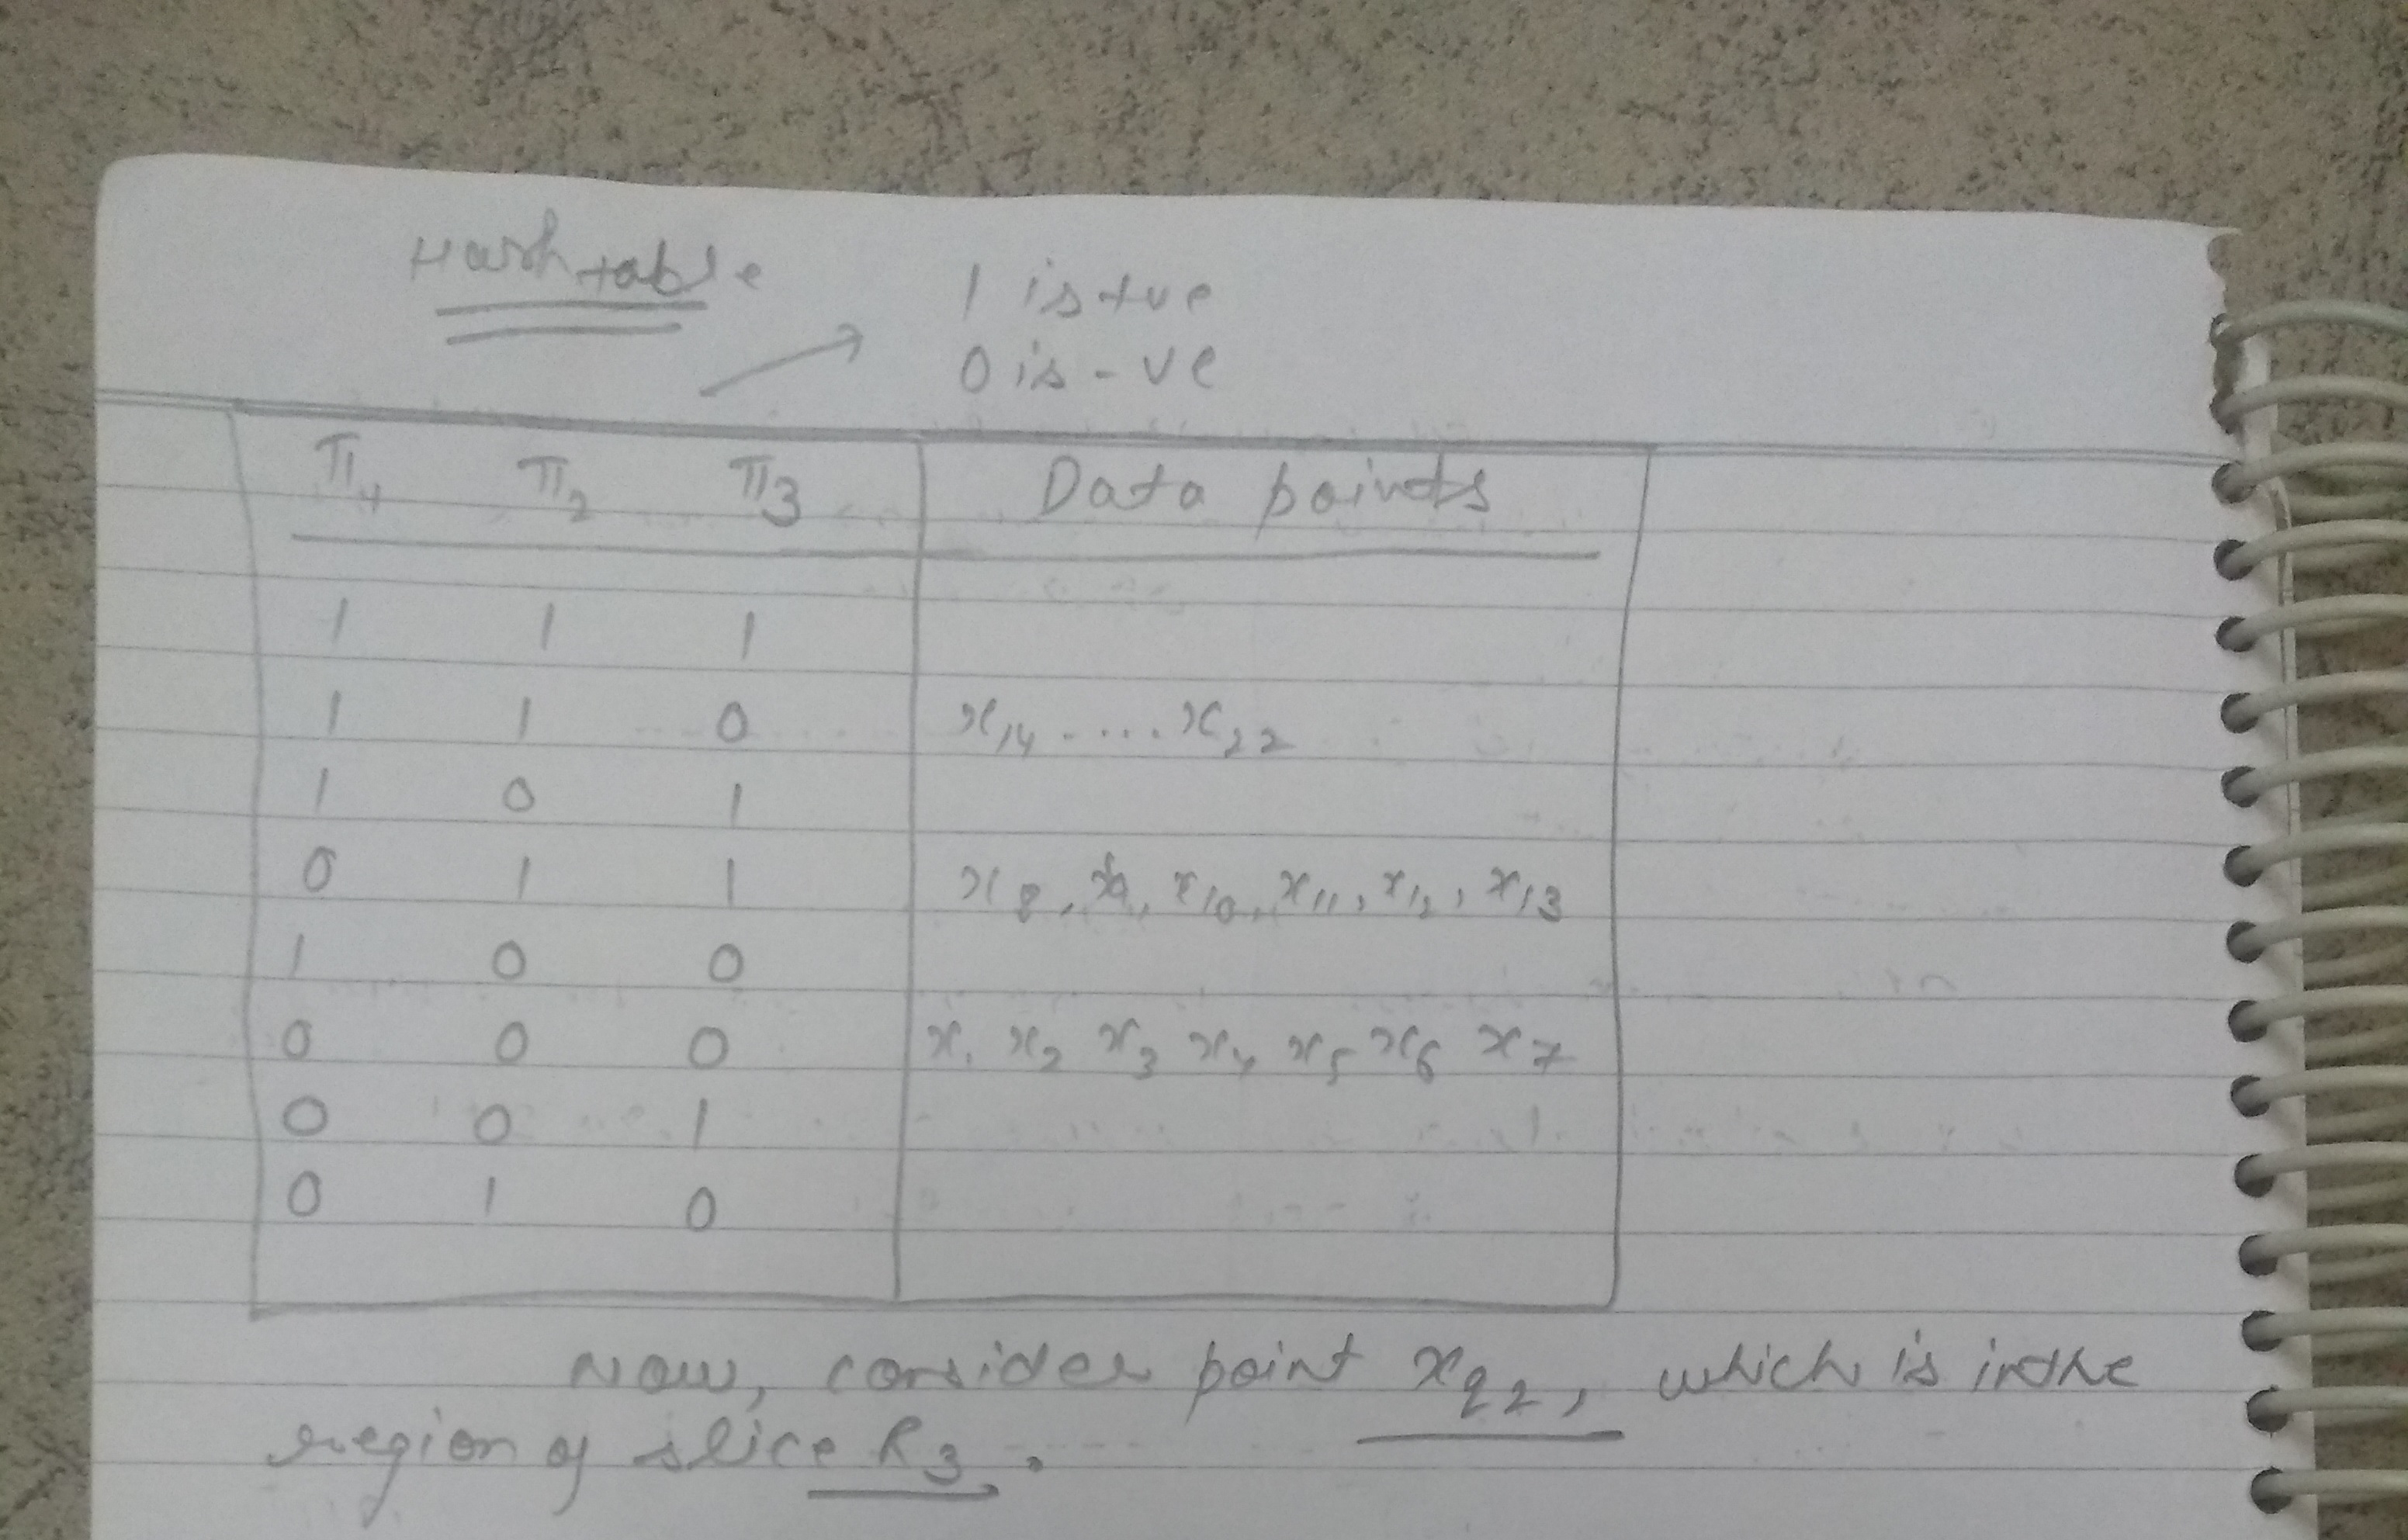 Hash table
1 is +ve
0 is -ve
π₁ π₂ π₃ Data points
1 1 1
1 1 0 x₁₄ ..... x₂₂
1 0 1
0 1 1 x₈, x₉, x₁₀, x₁₁, x₁₂, x₁₃
1 0 0
0 0 0 x₁ x₂ x₃ x₄ x₅ x₆ x₇
0 0 1
0 1 0
Now, consider point x_q₂, which is in the
region of slice R₃.